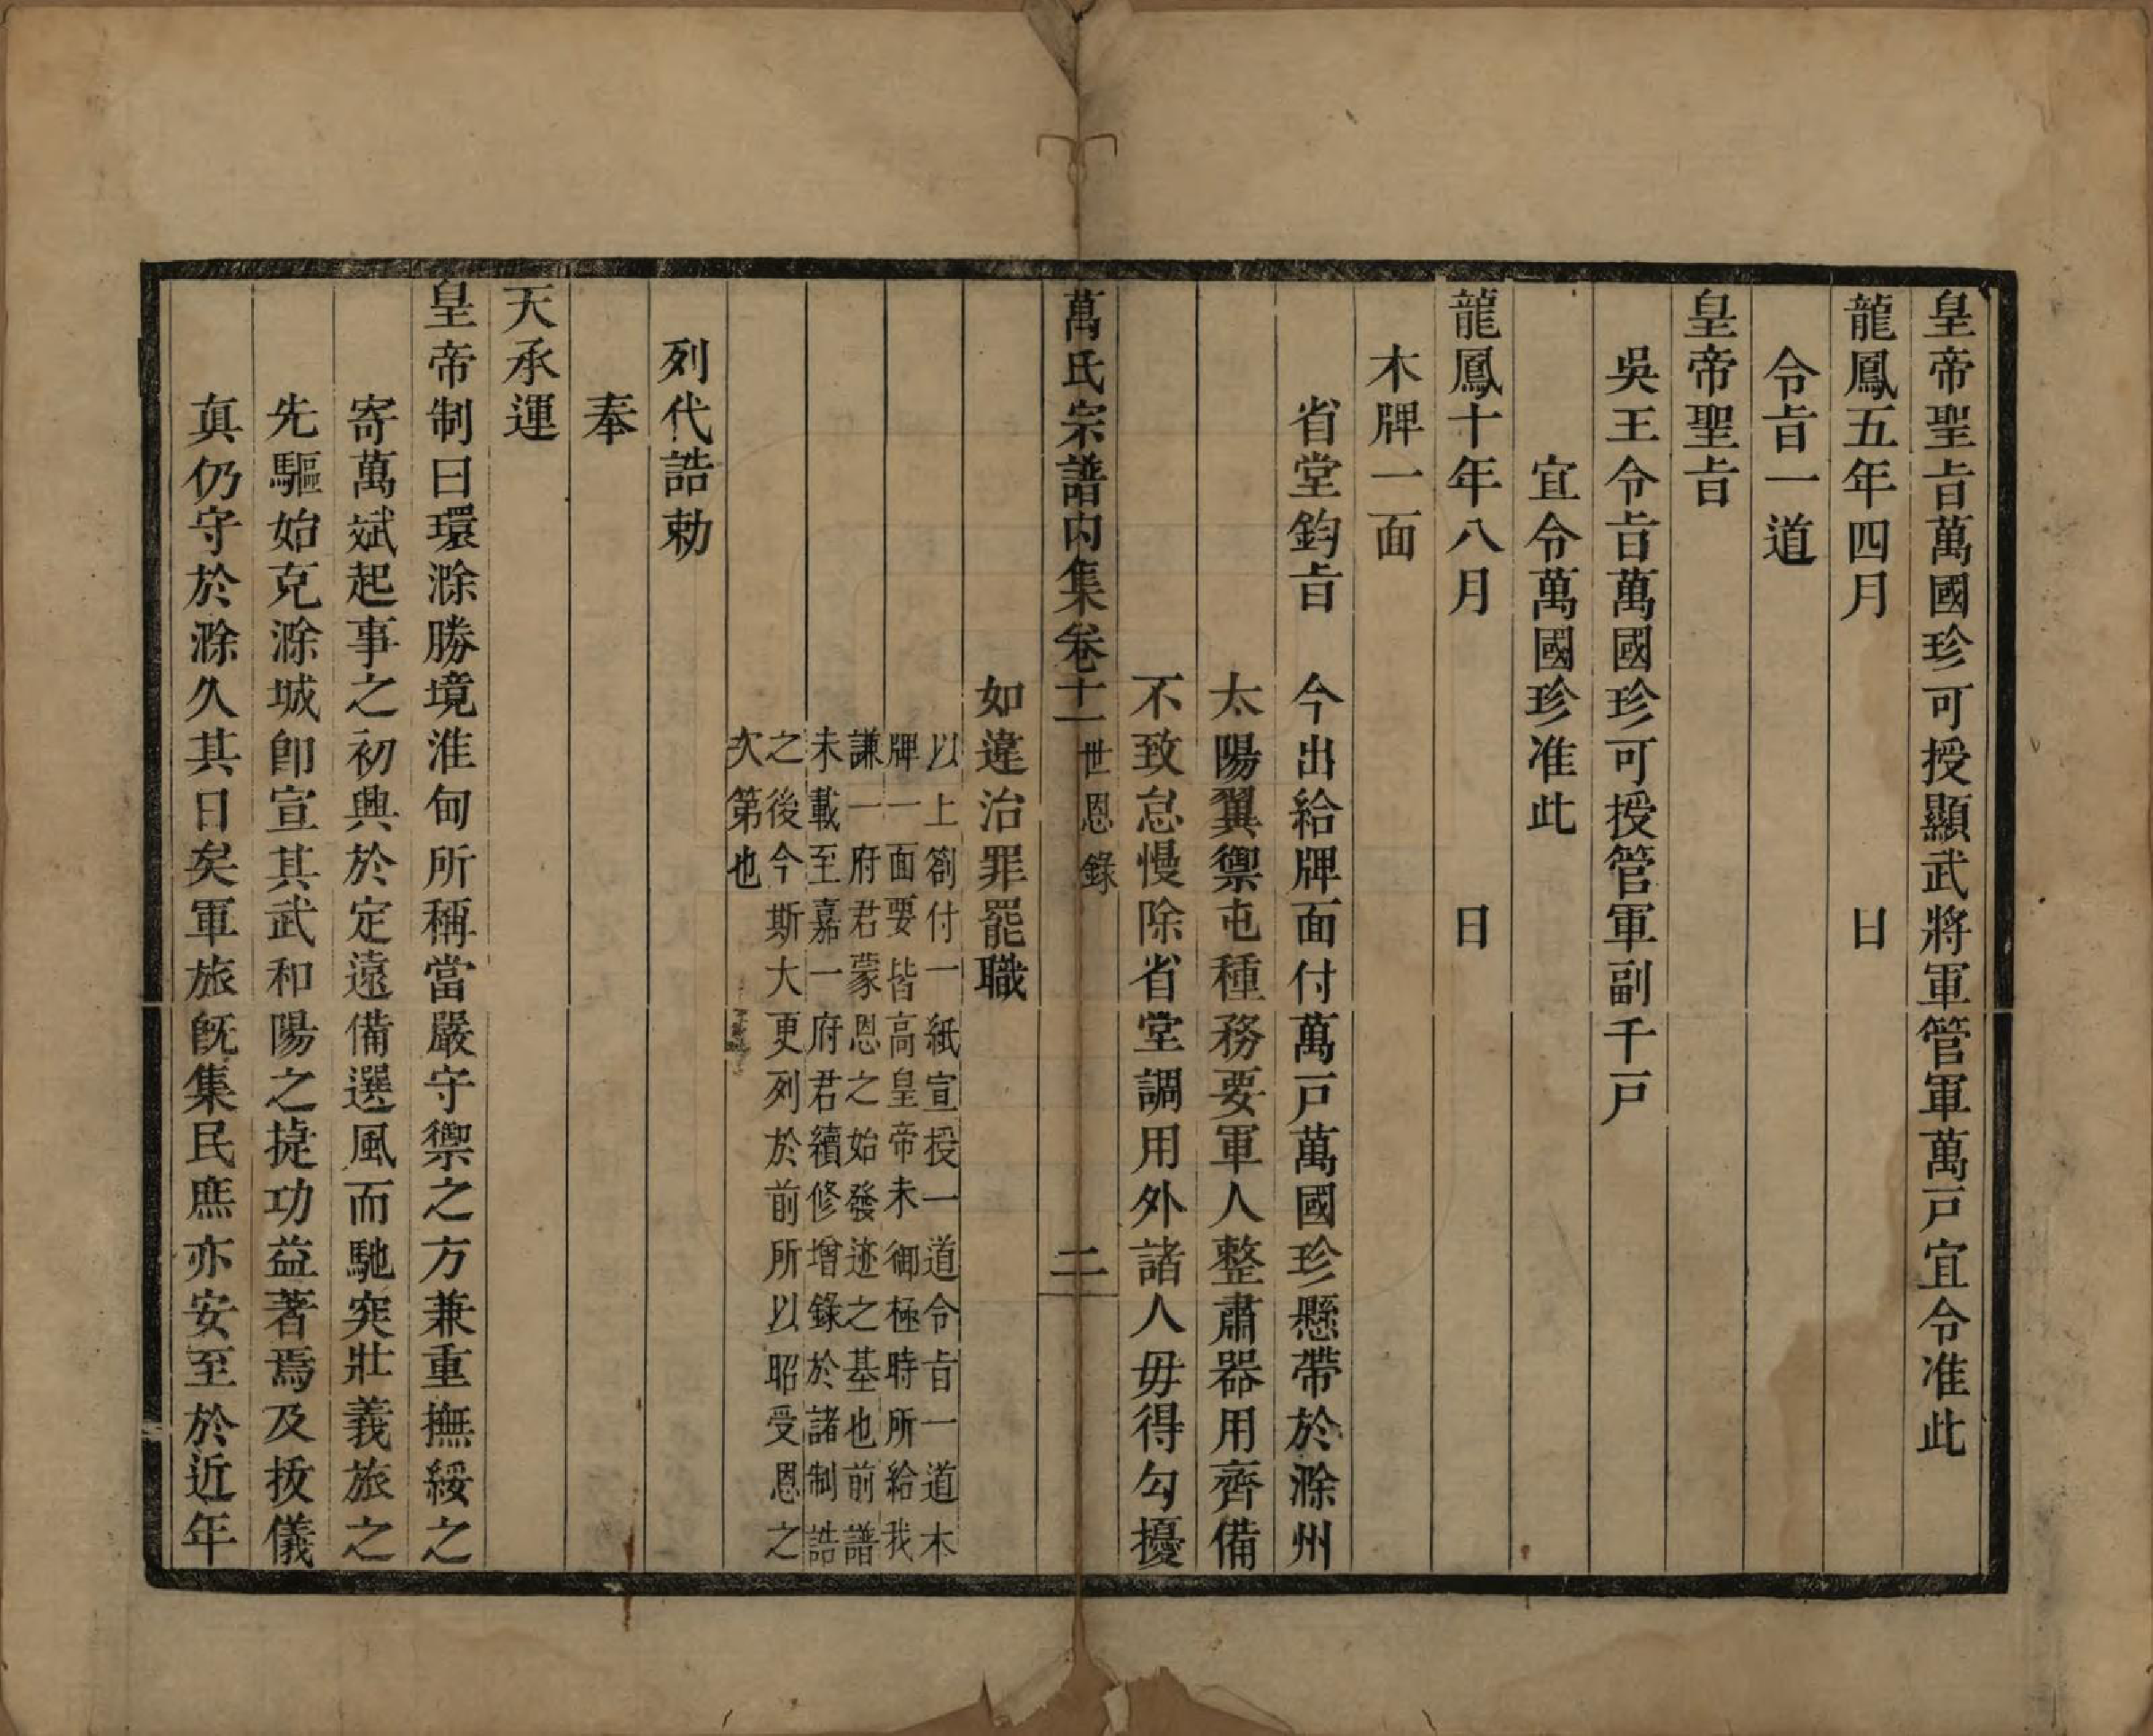 皇帝聖㫖萬國珍可授顯武將軍管軍萬戸宜令准此
龍鳳五年四月　日
令㫖一道
皇帝聖㫖
吳王令㫖萬國珍可授管軍副千戸
宜令萬國珍准此
龍鳳十年八月　日
木牌一面
省堂鈞㫖　今出給牌面付萬戸萬國珍懸帶於滁州
太陽翼禦屯種務要軍人整肅器用齊備
不致怠慢除省堂調用外諸人毋得勾擾
萬氏宗譜内集卷十一　世恩錄　二
如違治罪罷職
以上劄付一紙宣授一道令㫖一道木
牌一面要皆高皇帝未御極時所給我
謙一府君蒙恩之始發迹之基也前譜
未載至嘉一府君續修增錄於諸制誥
之後今斯大更列於前所以昭受恩之
次第也
列代誥勅
奉
天承運
皇帝制曰環滁勝境淮甸所稱當嚴守禦之方兼重撫綏之
寄萬斌起事之初興於定遠備選風而馳突壯義旅之
先驅始克滁城卽宣其武和陽之捷功益著焉及拔儀
真仍守於滁久其日矣軍旅旣集民庶亦安至於近年